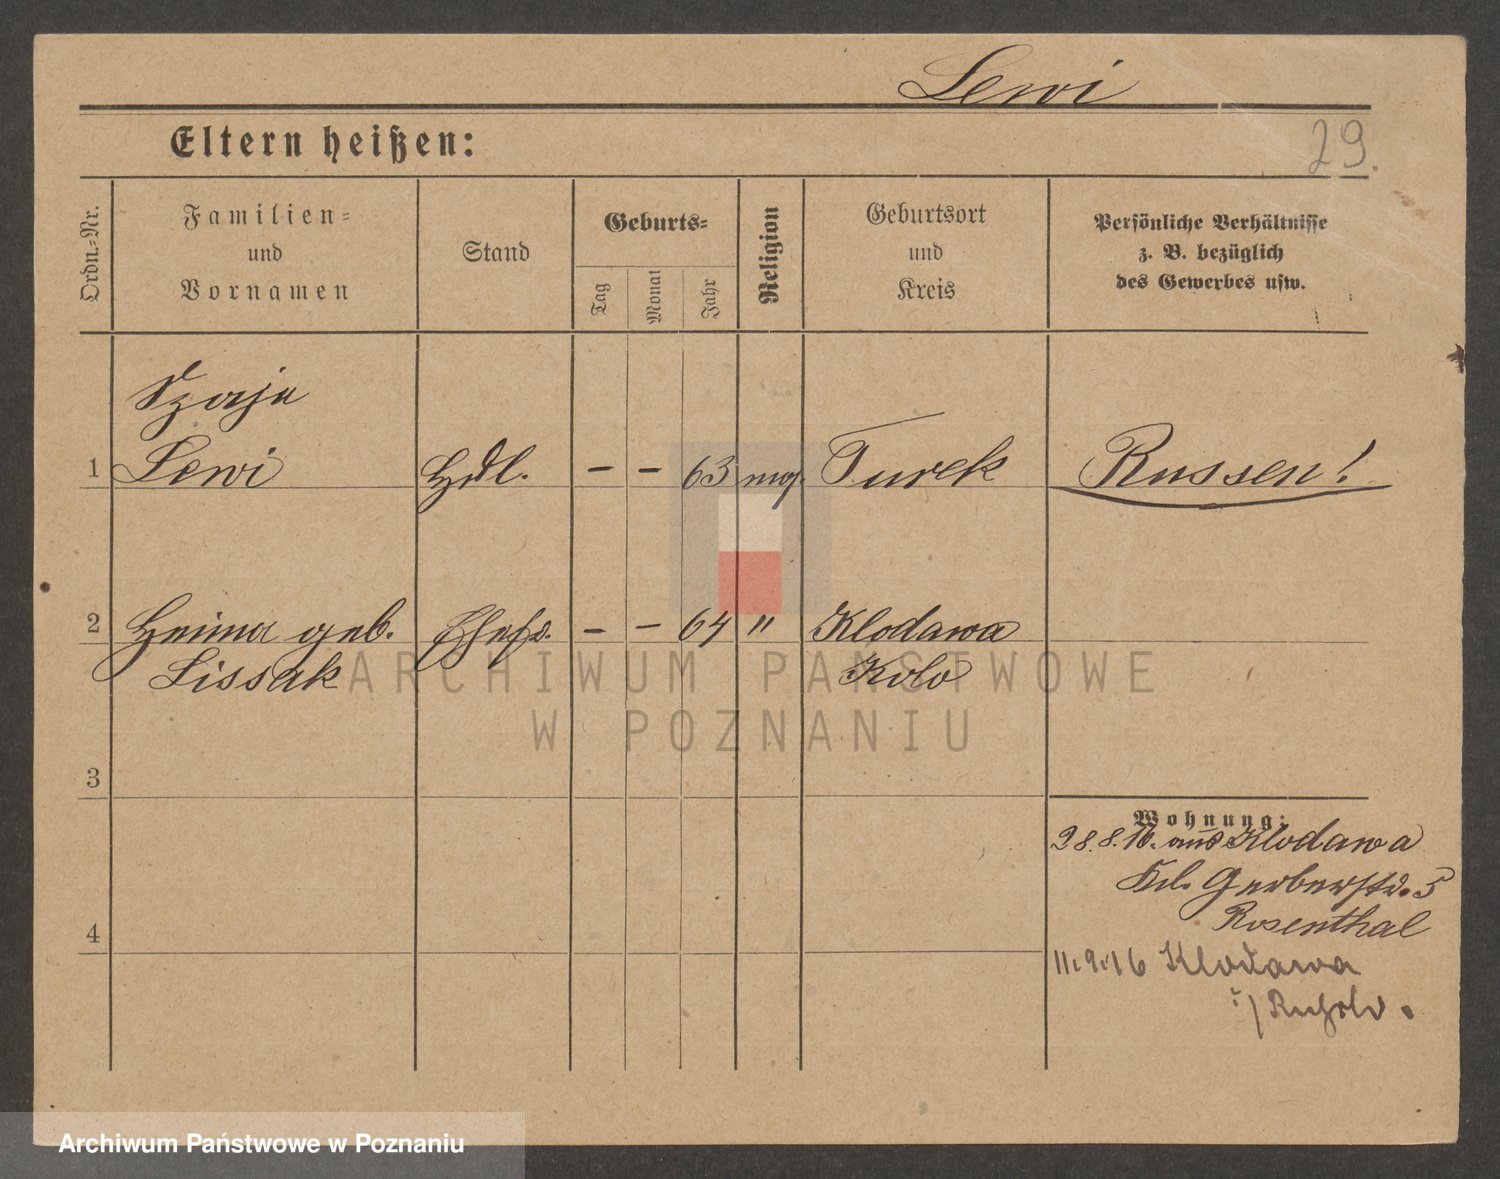 Lewi
Eltern heißen:
29.
Ordn.=Nr.
Familien=
und
Vornamen
Stand
Geburts=
Tag
Monat
Jahr
Religion
Geburtsort
und
Kreis
Persönliche Verhältnisse
z. B. bezüglich
des Gewerbes usw.
Szaja
1 Lewi Hdl. – – 63 mos. Turek Russen!
2 geb. Ehefr. – – 64 " Klodawa
Lissak Kolo
3
Wohnung:
28.8.16. aus Klodawa
Kl. Gerberstr. 5
Rosenthal
4
11.9.16 Klodawa
ARCHIWUM PAŃSTWOWE
W POZNANIU
Archiwum Państwowe w Poznaniu